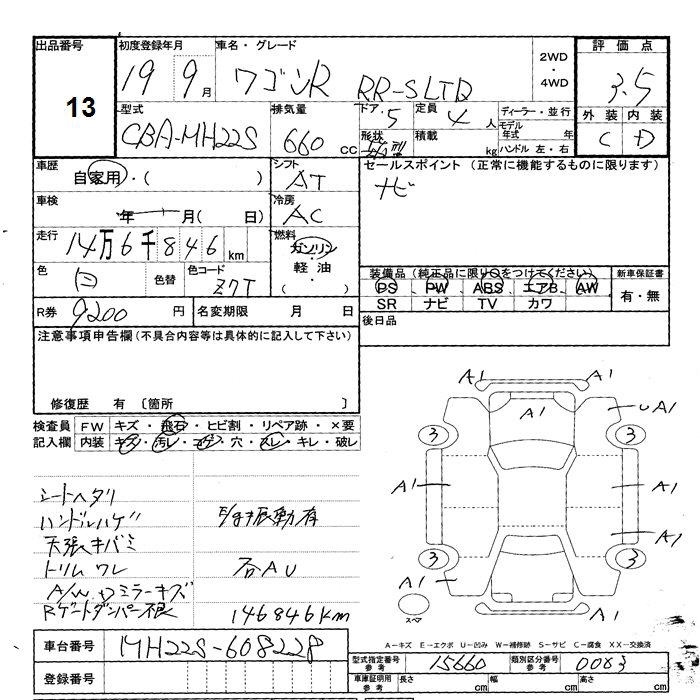 出品番号 初度登録年月 車名・グレード 2WD・4WD 評価点
13 19 9月 ワゴンR RR-SLTD 3.5
型式 排気量 ドア 5 定員 4人 ディーラー・並行 外装 内装
CBA-MH22S 660 CC 形状 積載 kg モデル年式 年 C D
ハンドル 左・右
車歴 自家用・( ) シフト AT セールスポイント (正常に機能するものに限ります)
車検 年 月( 日) 冷房 AC ナビ
走行 14万6千846km 燃料 ガソリン・軽油・( )
色 白 色替 色コード Z7T 装備品(純正品に限り○をつけてください) 新車保証書
PS PW ABS エアB AW 有・無
SR ナビ TV カワ
R券 9200円 名変期限 月 日 後日品
注意事項申告欄(不具合内容等は具体的に記入して下さい)
修復歴 有 〔箇所 〕
検査員 FW キズ・飛石・ヒビ割・リペア跡・×要
記入欄 内装 キズ・汚レ・コゲ・穴・スレ・キレ・破レ
シートヘタリ
ハンドルハゲ E/g振動有
天張キバミ
トリムワレ 右AU
A/W、Dミラーキズ
Rゲートダンパー不良 146846km
A1 A1
A1 UA1
3 3
A1 A1
A1
3 3
A1
スペア A1
A−キズ E−エクボ U−凹み W−補修跡 S−サビ C−腐食 XX−交換済
車台番号 MH22S-608228
型式指定番号 参考 15660 類別区分番号 参考 0083
登録番号 車庫証明用 参考 長さ cm 幅 cm 高さ cm